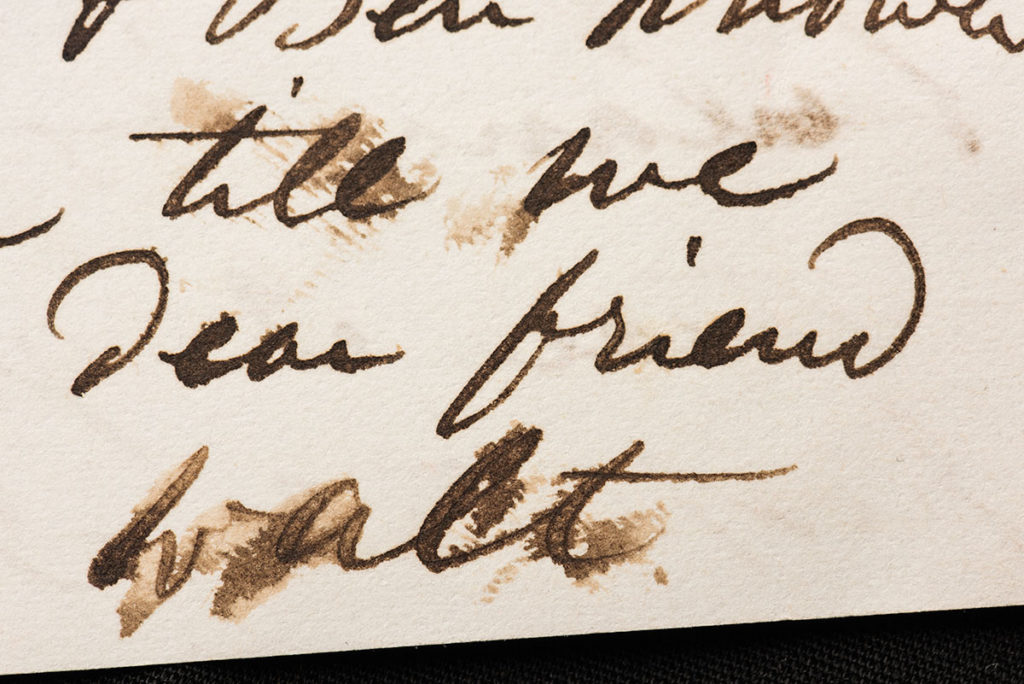 Ben
till we
Dear friend
Walt